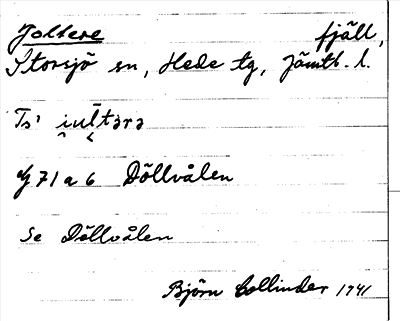 Joltere fjäll,
Storsjö sn, Hede tg, Jämtl. l.
Ts'
G 71 a 6 Döllvålen
Se Döllvålen
Björn Collinder 1941